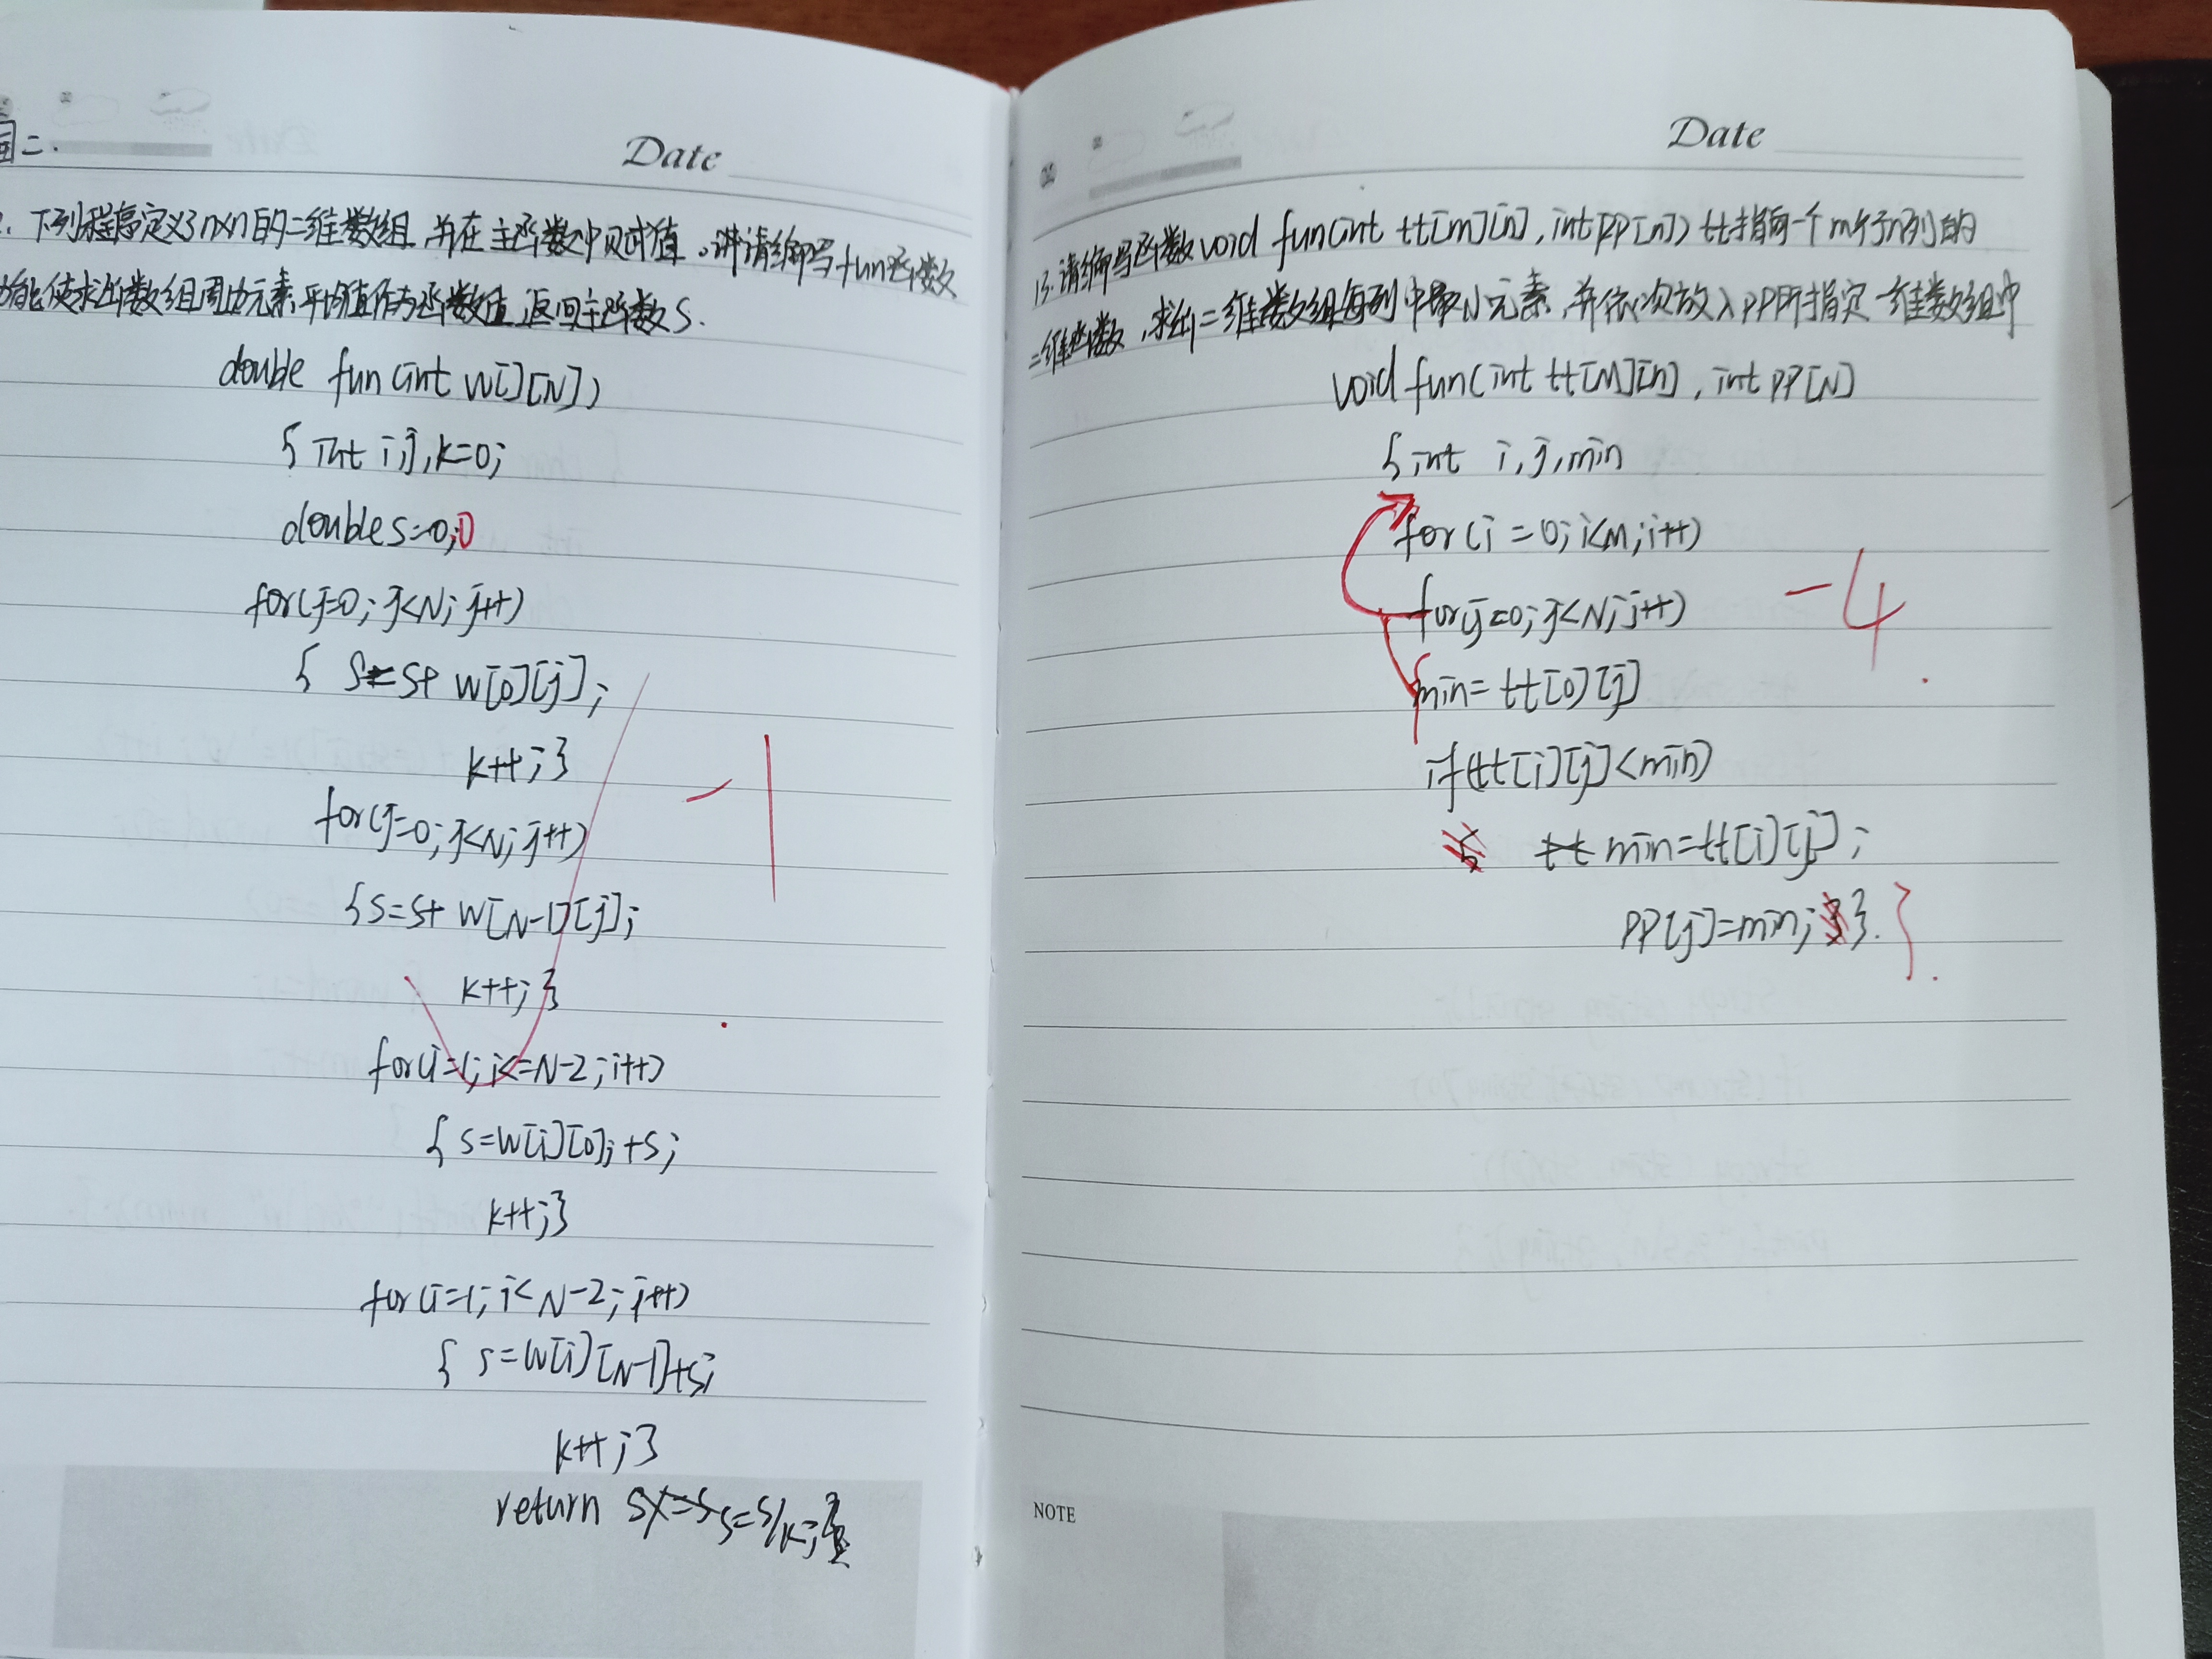 二.
Date
下列程序定义了n×n的二维数组,并在主函数中赋值。请编写fun函数
功能使求出数组周边元素平均值作为函数值,返回主函数S.
double fun(int w[][N])
{ int i,j,k=0;
double s=0;0
for(j=0; j<N; j++)
{ s=s+ w[0][j];
k++;}
for(j=0; j<N; j++)
{s=s+ w[N-1][j];
k++;}
for(i=1; i<=N-2; i++)
{ s=w[i][0];+s;
k++;}
for(i=1; i<N-2; i++)
{ s=w[i][N-1]+s;
k++;}
return s=s/k;}
-1
Date
13.请编写函数void fun(int tt[m][n],int pp[n]) tt指向一个m行n列的
二维函数,求出二维数组每列中最小元素,并依次放入PP所指定一维数组中
void fun(int tt[M][n], int pp[N]
{int i,j,min
for(i=0; i<M; i++)
for(j=0; j<N; j++)
{
min= tt[0][j]
if(tt[i][j]<min)
min=tt[i][j];
PP[j]=min; }. }
-4
NOTE